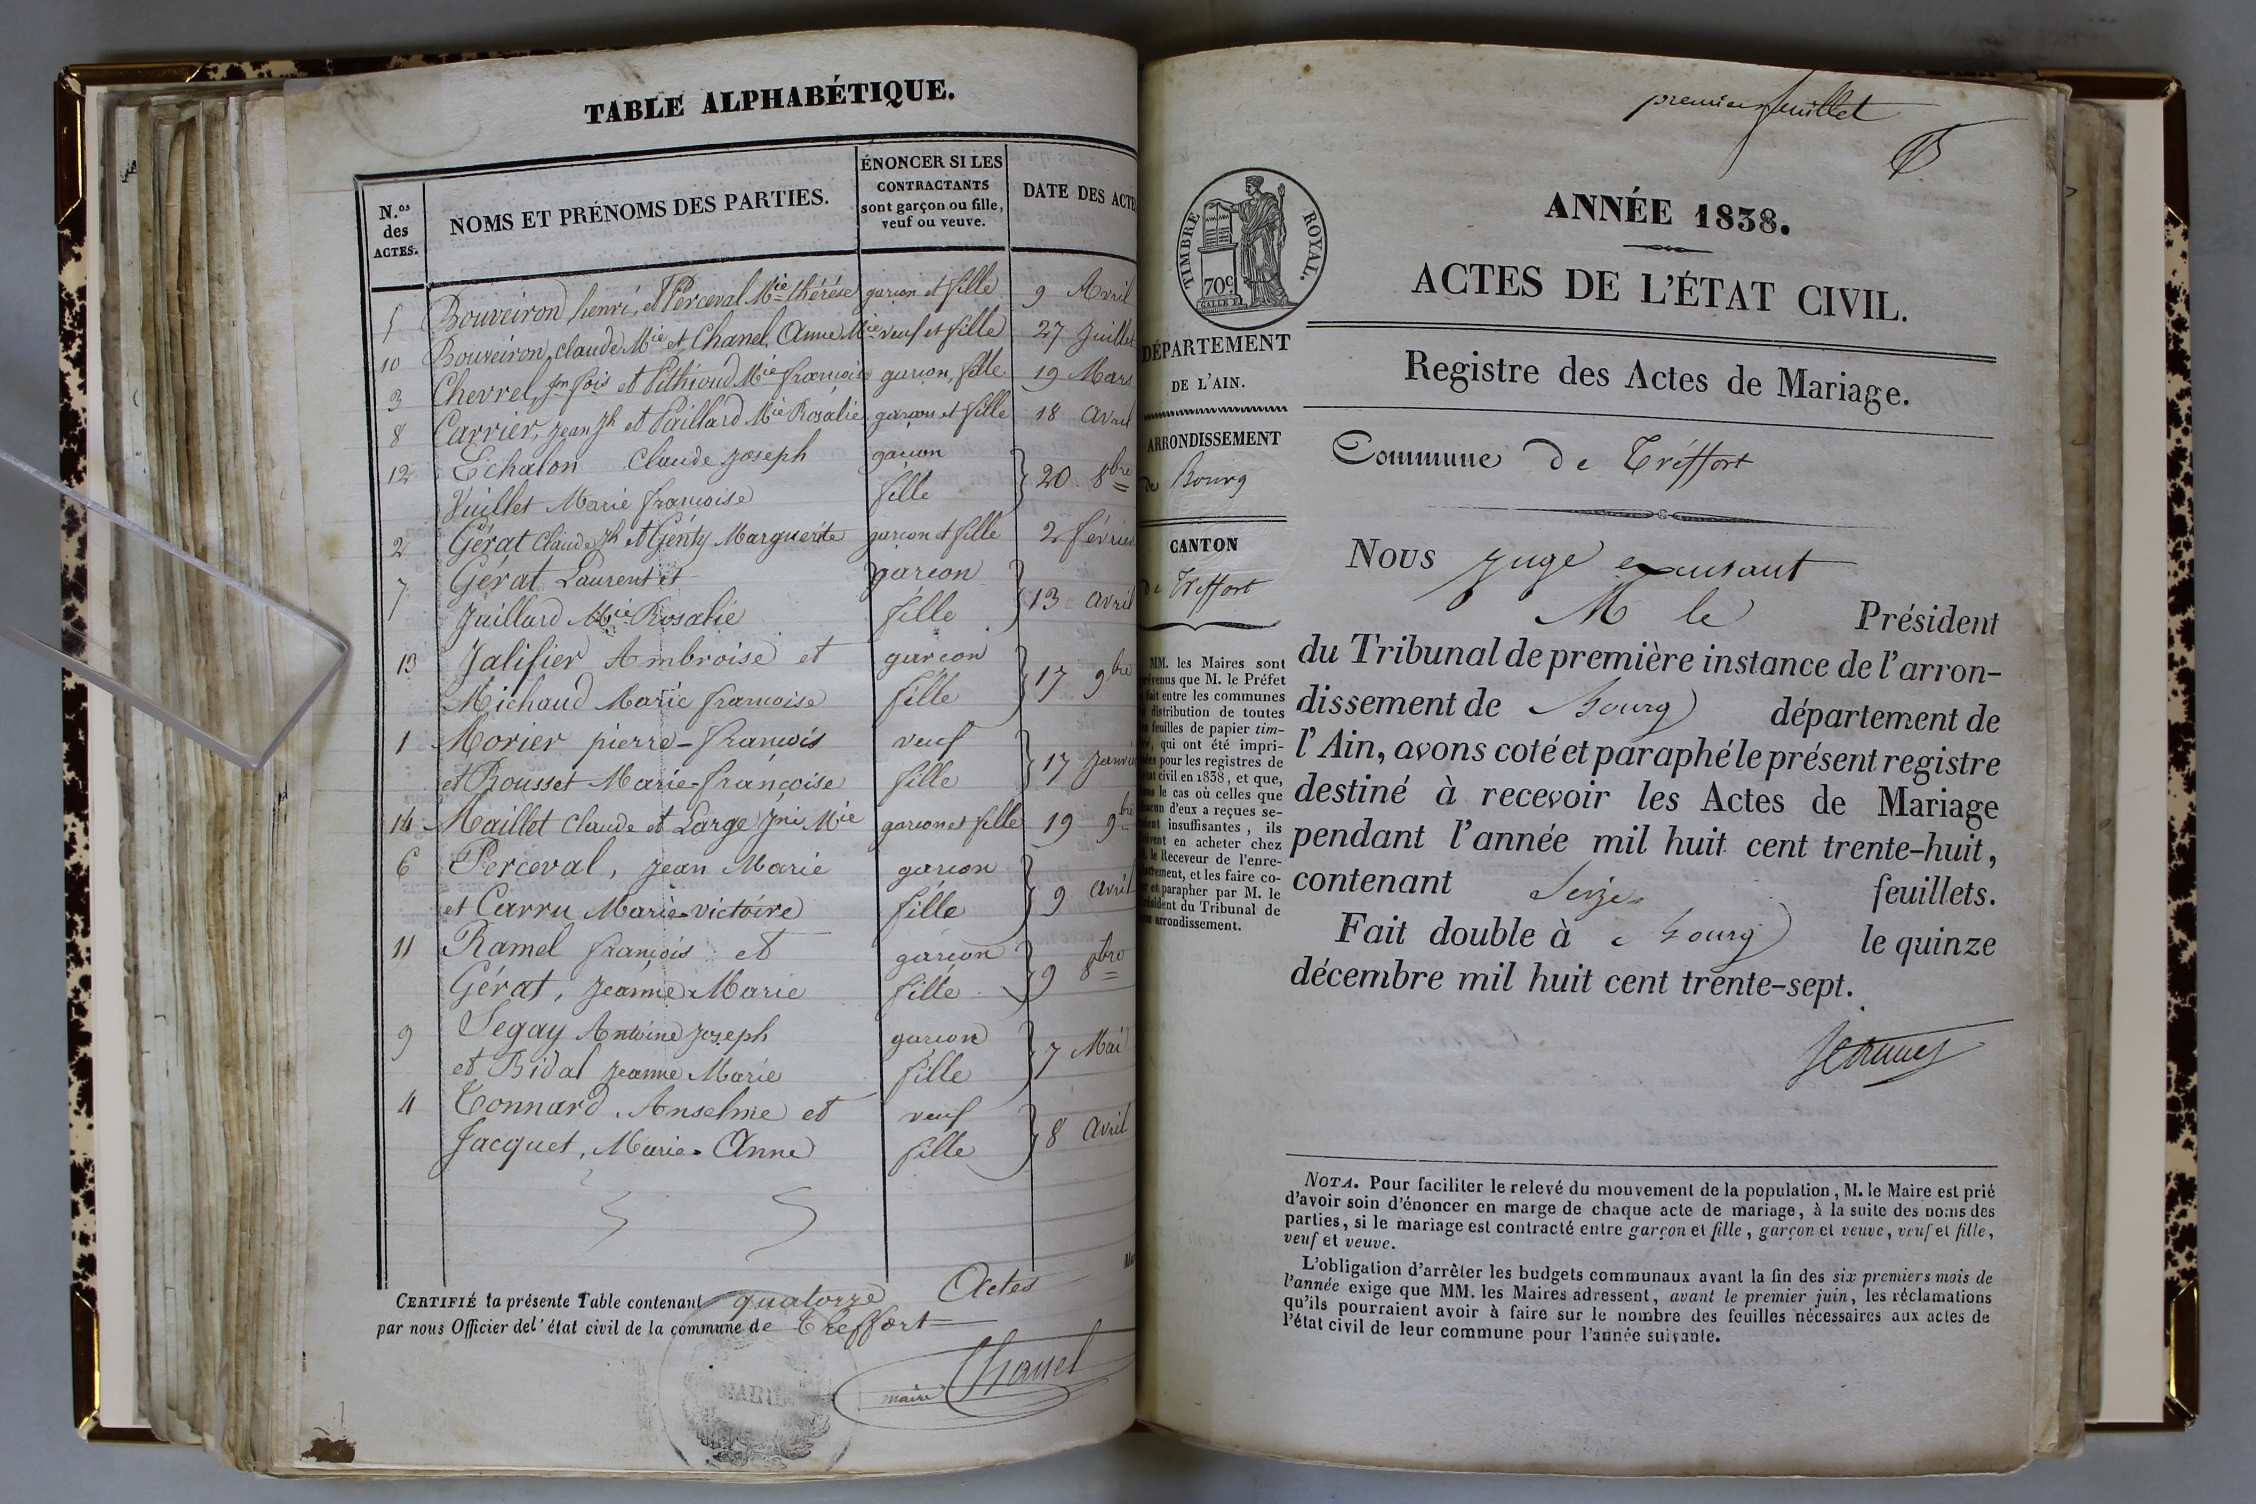 TABLE ALPHABÉTIQUE.
N.os des ACTES.
NOMS ET PRÉNOMS DES PARTIES.
ÉNONCER SI LES CONTRACTANTS sont garçon ou fille, veuf ou veuve.
DATE DES ACTE
5 Bouveiron henri, et Perceval Mie thérése garçon et fille 9 Avril
10 Bouveiron, claude Mie et Chanel Anne Mie veuf et fille 27 Juillet
3 Chevrel, jn fois et Pithioud Mie francoise garcon, fille 19 Mars
8 Carrier, jean Jh et Paillard Mie Rosalie garcon et fille 18 avril
12 Echalon Claude joseph garcon
Vuillet Marie francoise fille } 20 8bre
2 Gérat Claude Jh et Génty Marguerite garcon et fille 2 février
7 Gérat Laurent et garcon
Juillard Mie Rosalie fille } 13 avril
13 Jalifier Ambroise et garcon
Michaud Marie francoise fille } 17 9bre
1 Morier pierre-francois veuf
et Rousset Marie-françoise fille } 17 Janvier
14 Maillet Claude et Large Jne Mie garcon et fille 19 9bre
6 Perceval, jean Marie garcon
et Carru Marie-victoire fille } 9 avril
11 Ramel françois et garcon
Gérat, jeanne Marie fille } 9 8bre
9 Segay Antoine joseph garcon
et Bidal jeanne Marie fille } 7 Mai
4 Connard, Anselme et veuf
Jacquet, Marie-Anne fille } 8 avril
CERTIFIÉ la présente Table contenant quatorze Actes
par nous Officier de l'état civil de la commune de Treffort
maire Chanel
premier feuillet
TIMBRE ROYAL.
70c.
ANNÉE 1838.
ACTES DE L'ÉTAT CIVIL.
DÉPARTEMENT
DE L'AIN.
ARRONDISSEMENT
de Bourg
CANTON
de Treffort
MM. les Maires sont
prévenus que M. le Préfet
a fait entre les communes
la distribution de toutes
les feuilles de papier tim-
bré, qui ont été impri-
mées pour les registres de
l'état civil en 1838, et que,
dans le cas où celles que
chacun d'eux a reçues se-
raient insuffisantes, ils
doivent en acheter chez
M. le Receveur de l'enre-
gistrement, et les faire co-
ter et parapher par M. le
Président du Tribunal de
leur arrondissement.
Registre des Actes de Mariage.
Commune de Tréffort
Nous juge
M le Président
du Tribunal de première instance de l'arron-
dissement de Bourg département de
l'Ain, avons coté et paraphé le présent registre
destiné à recevoir les Actes de Mariage
pendant l'année mil huit cent trente-huit,
contenant Seize feuillets.
Fait double à Bourg le quinze
décembre mil huit cent trente-sept.
NOTA. Pour faciliter le relevé du mouvement de la population, M. le Maire est prié
d'avoir soin d'énoncer en marge de chaque acte de mariage, à la suite des noms des
parties, si le mariage est contracté entre garçon et fille, garçon et veuve, veuf et fille,
veuf et veuve.
L'obligation d'arrêter les budgets communaux avant la fin des six premiers mois de
l'année exige que MM. les Maires adressent, avant le premier juin, les réclamations
qu'ils pourraient avoir à faire sur le nombre des feuilles nécessaires aux actes de
l'état civil de leur commune pour l'année suivante.